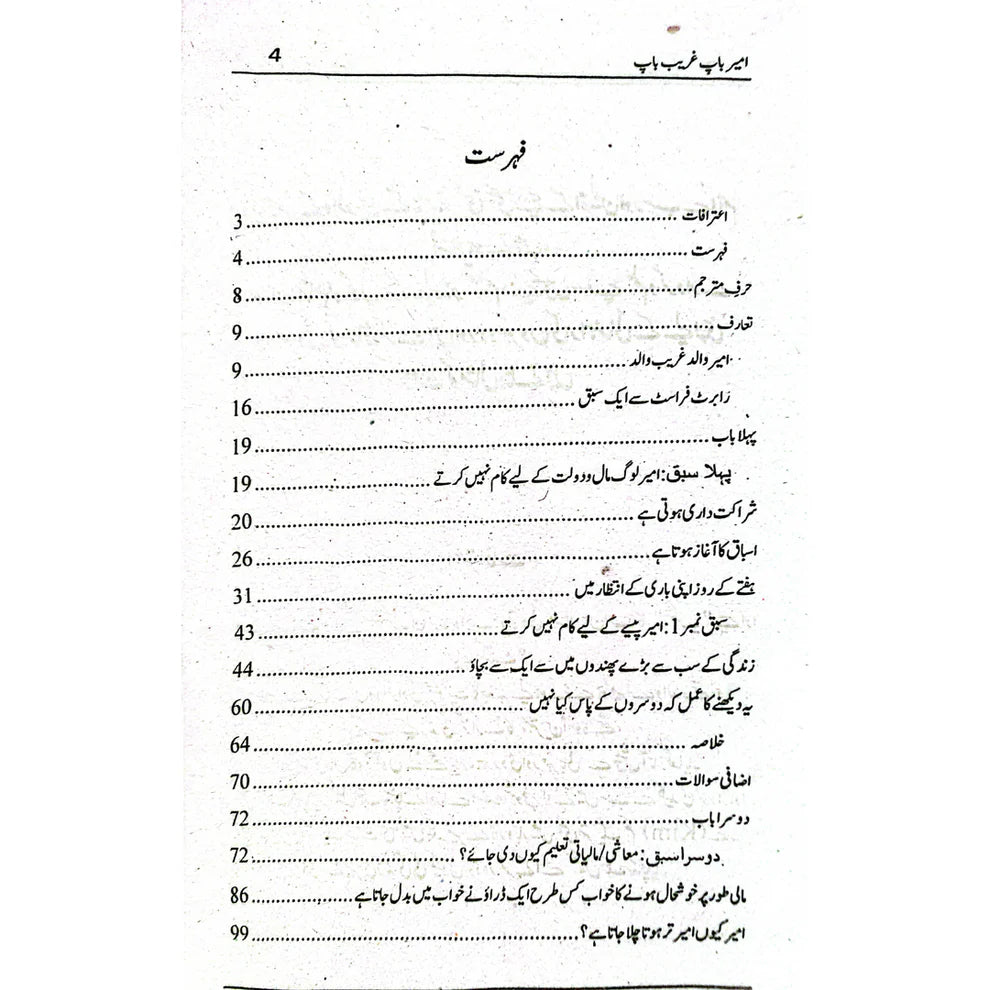 امیر باپ غریب باپ 4
فہرست
اعترافات ........ 3
فہرست ........ 4
حرفِ مترجم ........ 8
تعارف ........ 9
امیر والد غریب والد ........ 9
رابرٹ فراسٹ سے ایک سبق ........ 16
پہلا باب ........ 19
پہلا سبق: امیر لوگ مال و دولت کے لیے کام نہیں کرتے ........ 19
شراکت داری ہوتی ہے ........ 20
اسباق کا آغاز ہوتا ہے ........ 26
ہفتے کے روز اپنی باری کے انتظار میں ........ 31
سبق نمبر 1: امیر پیسے کے لیے کام نہیں کرتے ........ 43
زندگی کے سب سے بڑے پھندوں میں سے ایک سے بچاؤ ........ 44
یہ دیکھنے کا عمل کہ دوسروں کے پاس کیا نہیں ........ 60
خلاصہ ........ 64
اضافی سوالات ........ 70
دوسرا باب ........ 72
دوسرا سبق: معاشی/مالیاتی تعلیم کیوں دی جائے؟ ........ 72
مالی طور پر خوشحال ہونے کا خواب کس طرح ایک ڈراؤنے خواب میں بدل جاتا ہے ........ 86
امیر کیوں امیر تر ہوتا چلا جاتا ہے؟ ........ 99